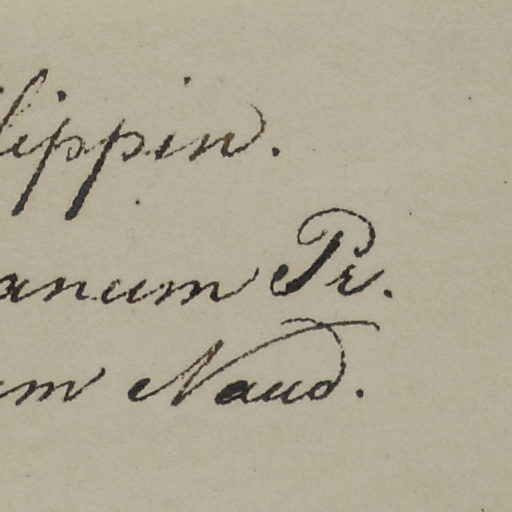 lippin.
anum Pr.
um Naud.